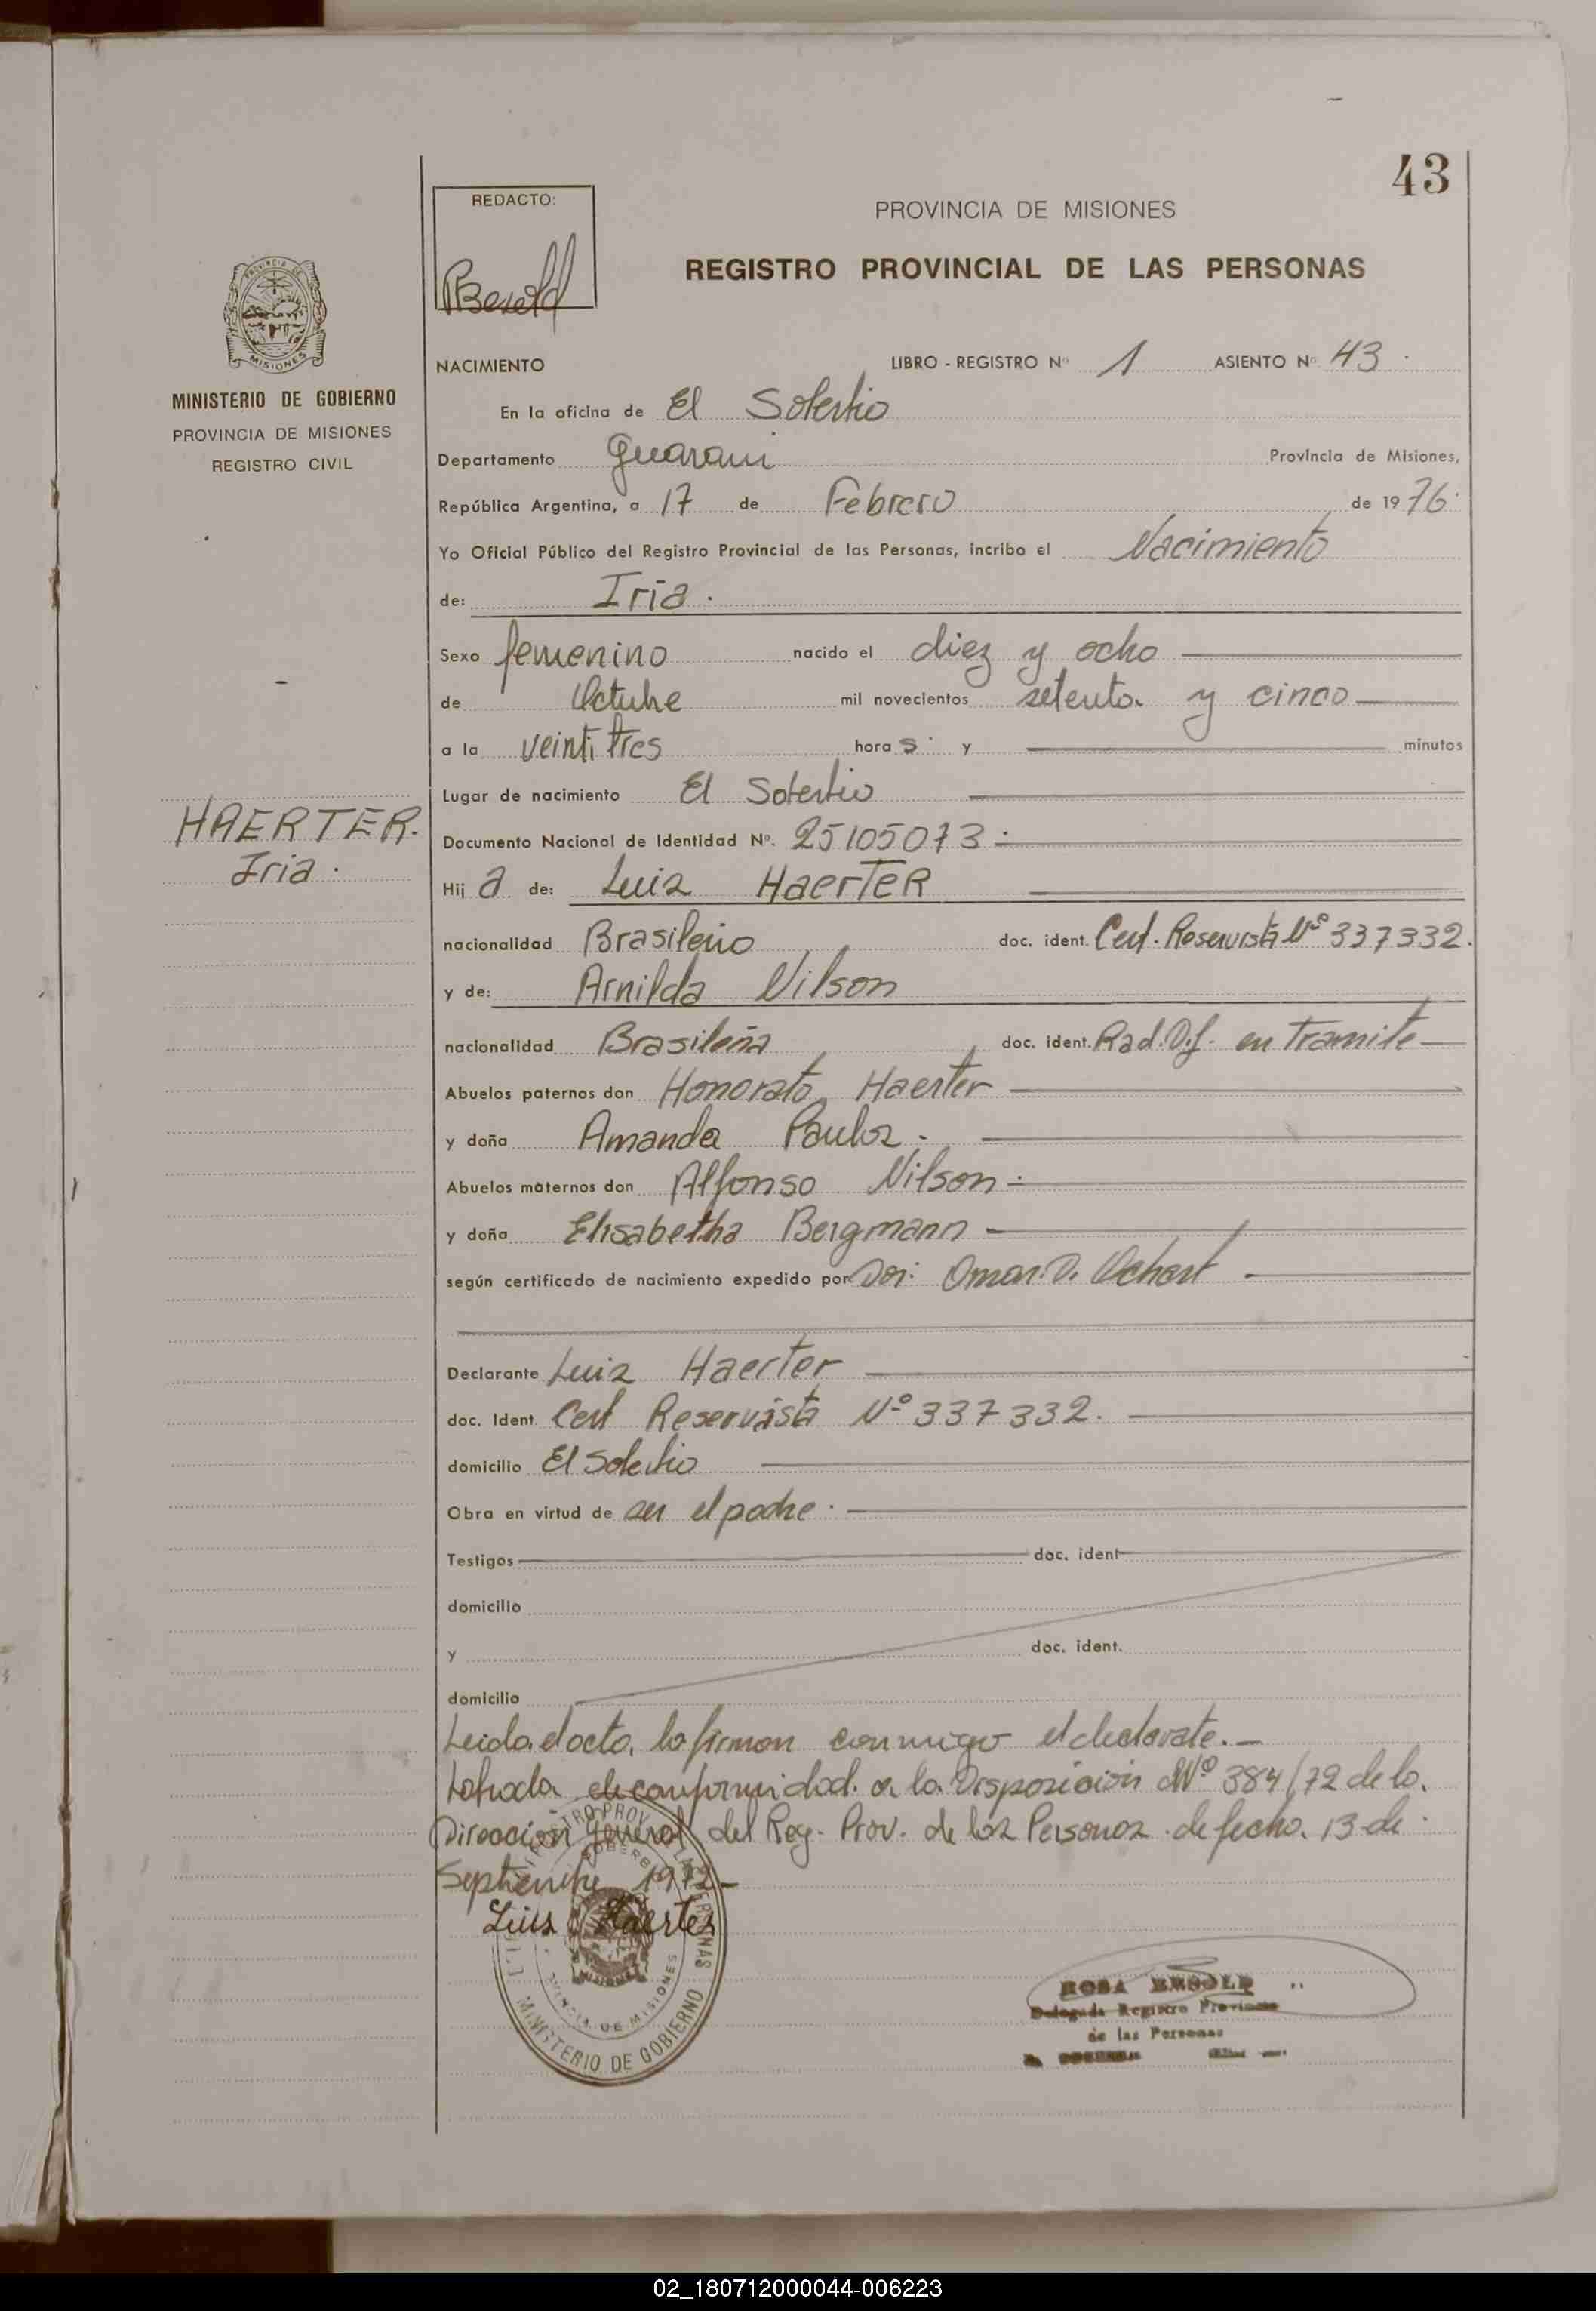 43
REDACTO:
PROVINCIA DE MISIONES
REGISTRO PROVINCIAL DE LAS PERSONAS
MISIONES
MINISTERIO DE GOBIERNO
PROVINCIA DE MISIONES
REGISTRO CIVIL
NACIMIENTO LIBRO - REGISTRO Nº 1 ASIENTO Nº 43
En la oficina de El Soberbio
Departamento Guarani Provincia de Misiones,
República Argentina, a 17 de Febrero de 1976
Yo Oficial Público del Registro Provincial de las Personas, incribo el Nacimiento
de: Iria.
Sexo femenino nacido el diez y ocho
de Octubre mil novecientos setenta y cinco
a la veinti tres horas y minutos
Lugar de nacimiento El Soberbio
HAERTER.
Iria.
Documento Nacional de Identidad Nº. 25105073
Hija de: Luiz HaerTER
nacionalidad Brasileño doc. ident. Cert. Reservista Nº 337332.
y de: Arnilda Nilson
nacionalidad Brasileña doc. ident. Rad. Df. en Tramite
Abuelos paternos don Honorato Haerter
y doña Amanda
Abuelos maternos don Alfonso Nilson
y doña Elisabetha Bergmann
según certificado de nacimiento expedido por Omar. D.
Declarante Luiz Haerter
doc. Ident. Cert Reservista Nº 337332.
domicilio El Soberbio
Obra en virtud de ser el padre.
Testigos doc. ident
domicilio
y doc. ident.
domicilio
Leida el acta, la firman conmigo el declarate.
Labrada de conformidad a la Disposición Nº 384/72 de la
Dirección General del Reg. Prov. de las Personas de fecha 13 de
Septiembre 1972
Luis Haerter
MINISTERIO DE GOBIERNO
ROSA BESOLD
Delegada Registro Provincial
de las Personas
02_180712000044-006223